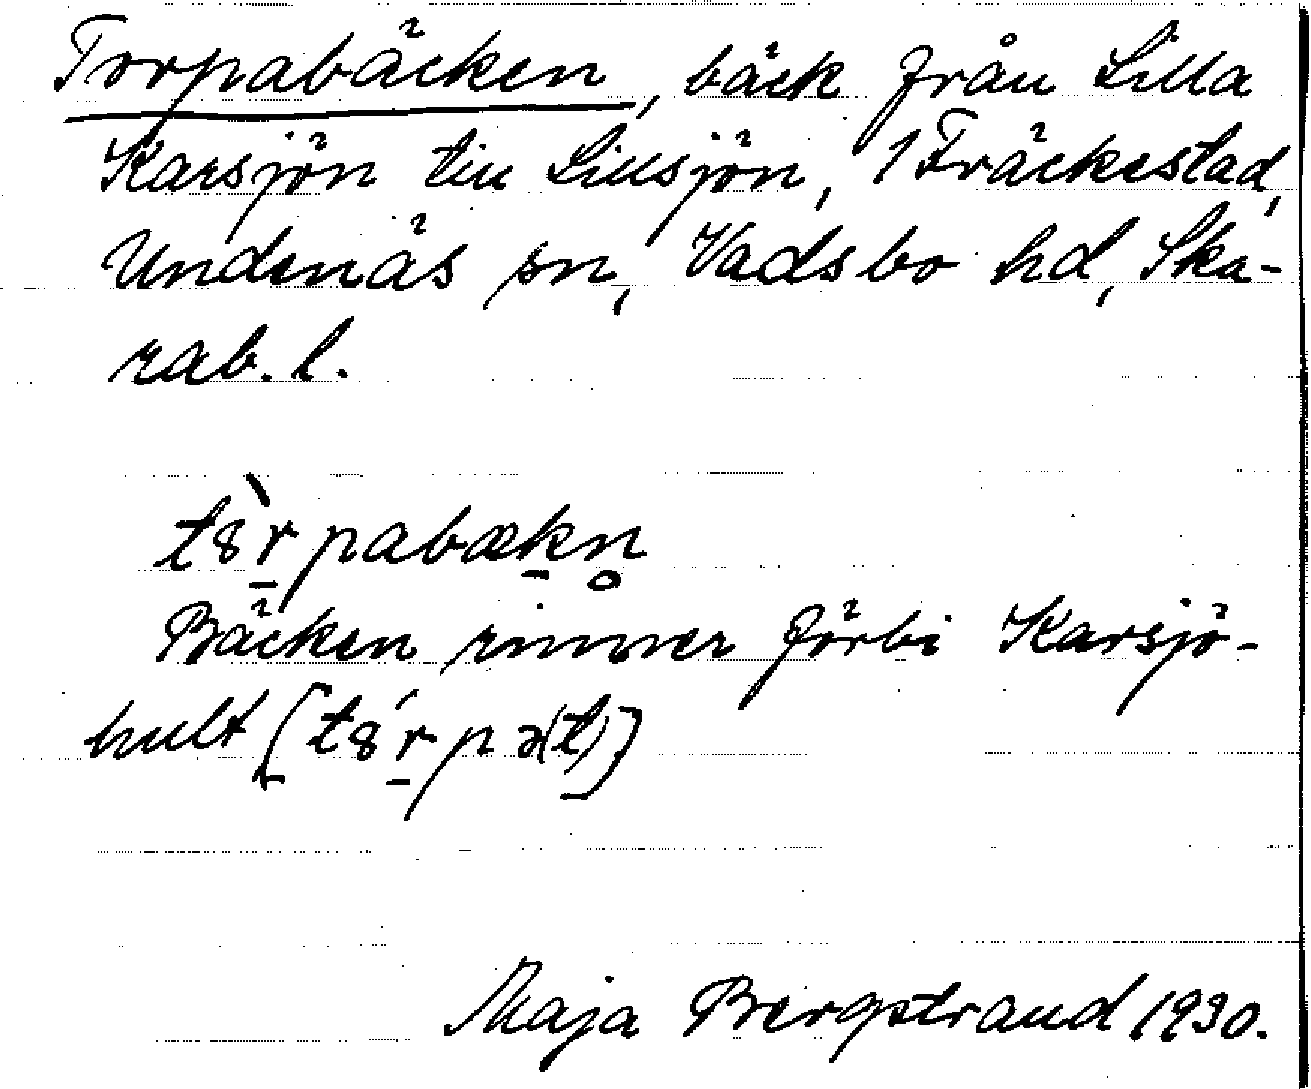 Torpabäcken, bäck från Lilla
Karsjön till Lillsjön, 1 Fräckestad,
Undenäs sn, Vadsbo hd, Ska-
rab. l.
tȣ̀r̠pabæk̠n̥
Bäcken rinner förbi Karsjö-
hult [tȣ́r̠pə(t)]
Maja Bergstrand 1930.